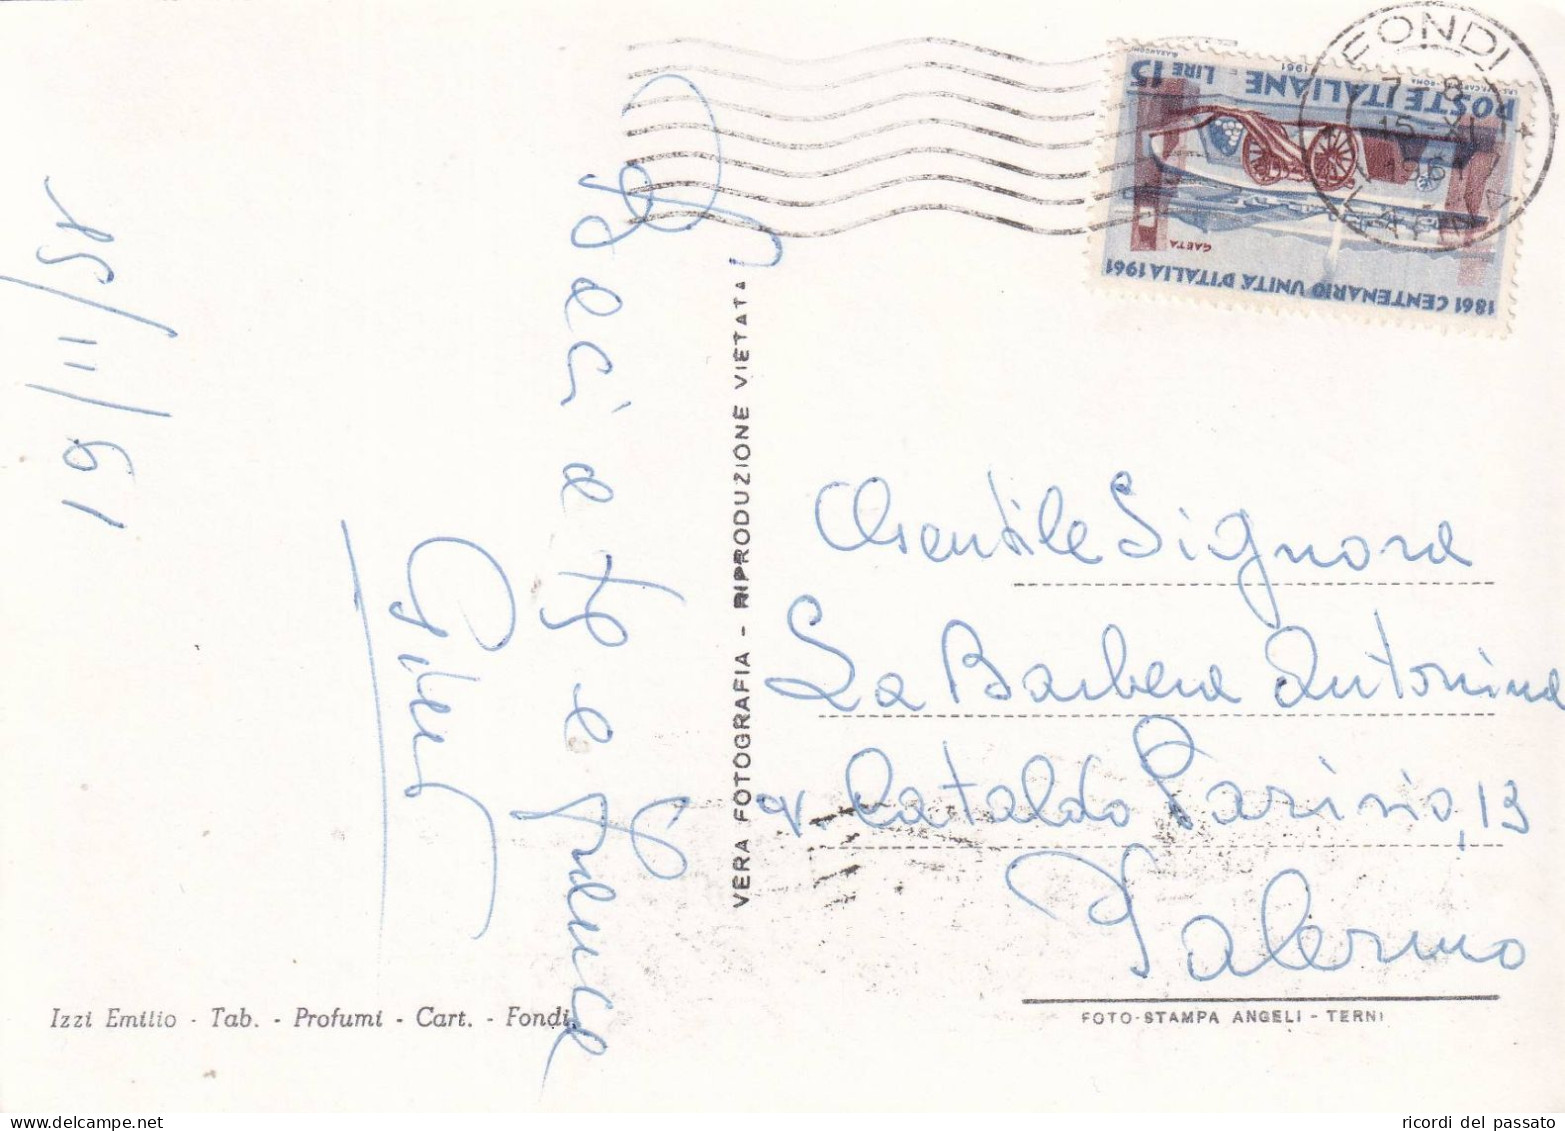 15/11/61
Baci a te e
Gilberto
VERA FOTOGRAFIA - RIPRODUZIONE VIETATA
FONDI
7-8
15-XI
1961
LATINA
1861 CENTENARIO UNITÀ D'ITALIA 1961
GAETA
POSTE ITALIANE
LIRE 15
1961
Gentile Signora
La Barbera Antonina
v. Cataldo Parisio, 13
Palermo
Izzi Emilio - Tab. - Profumi - Cart. - Fondi
FOTO-STAMPA ANGELI - TERNI
ricordi del passato